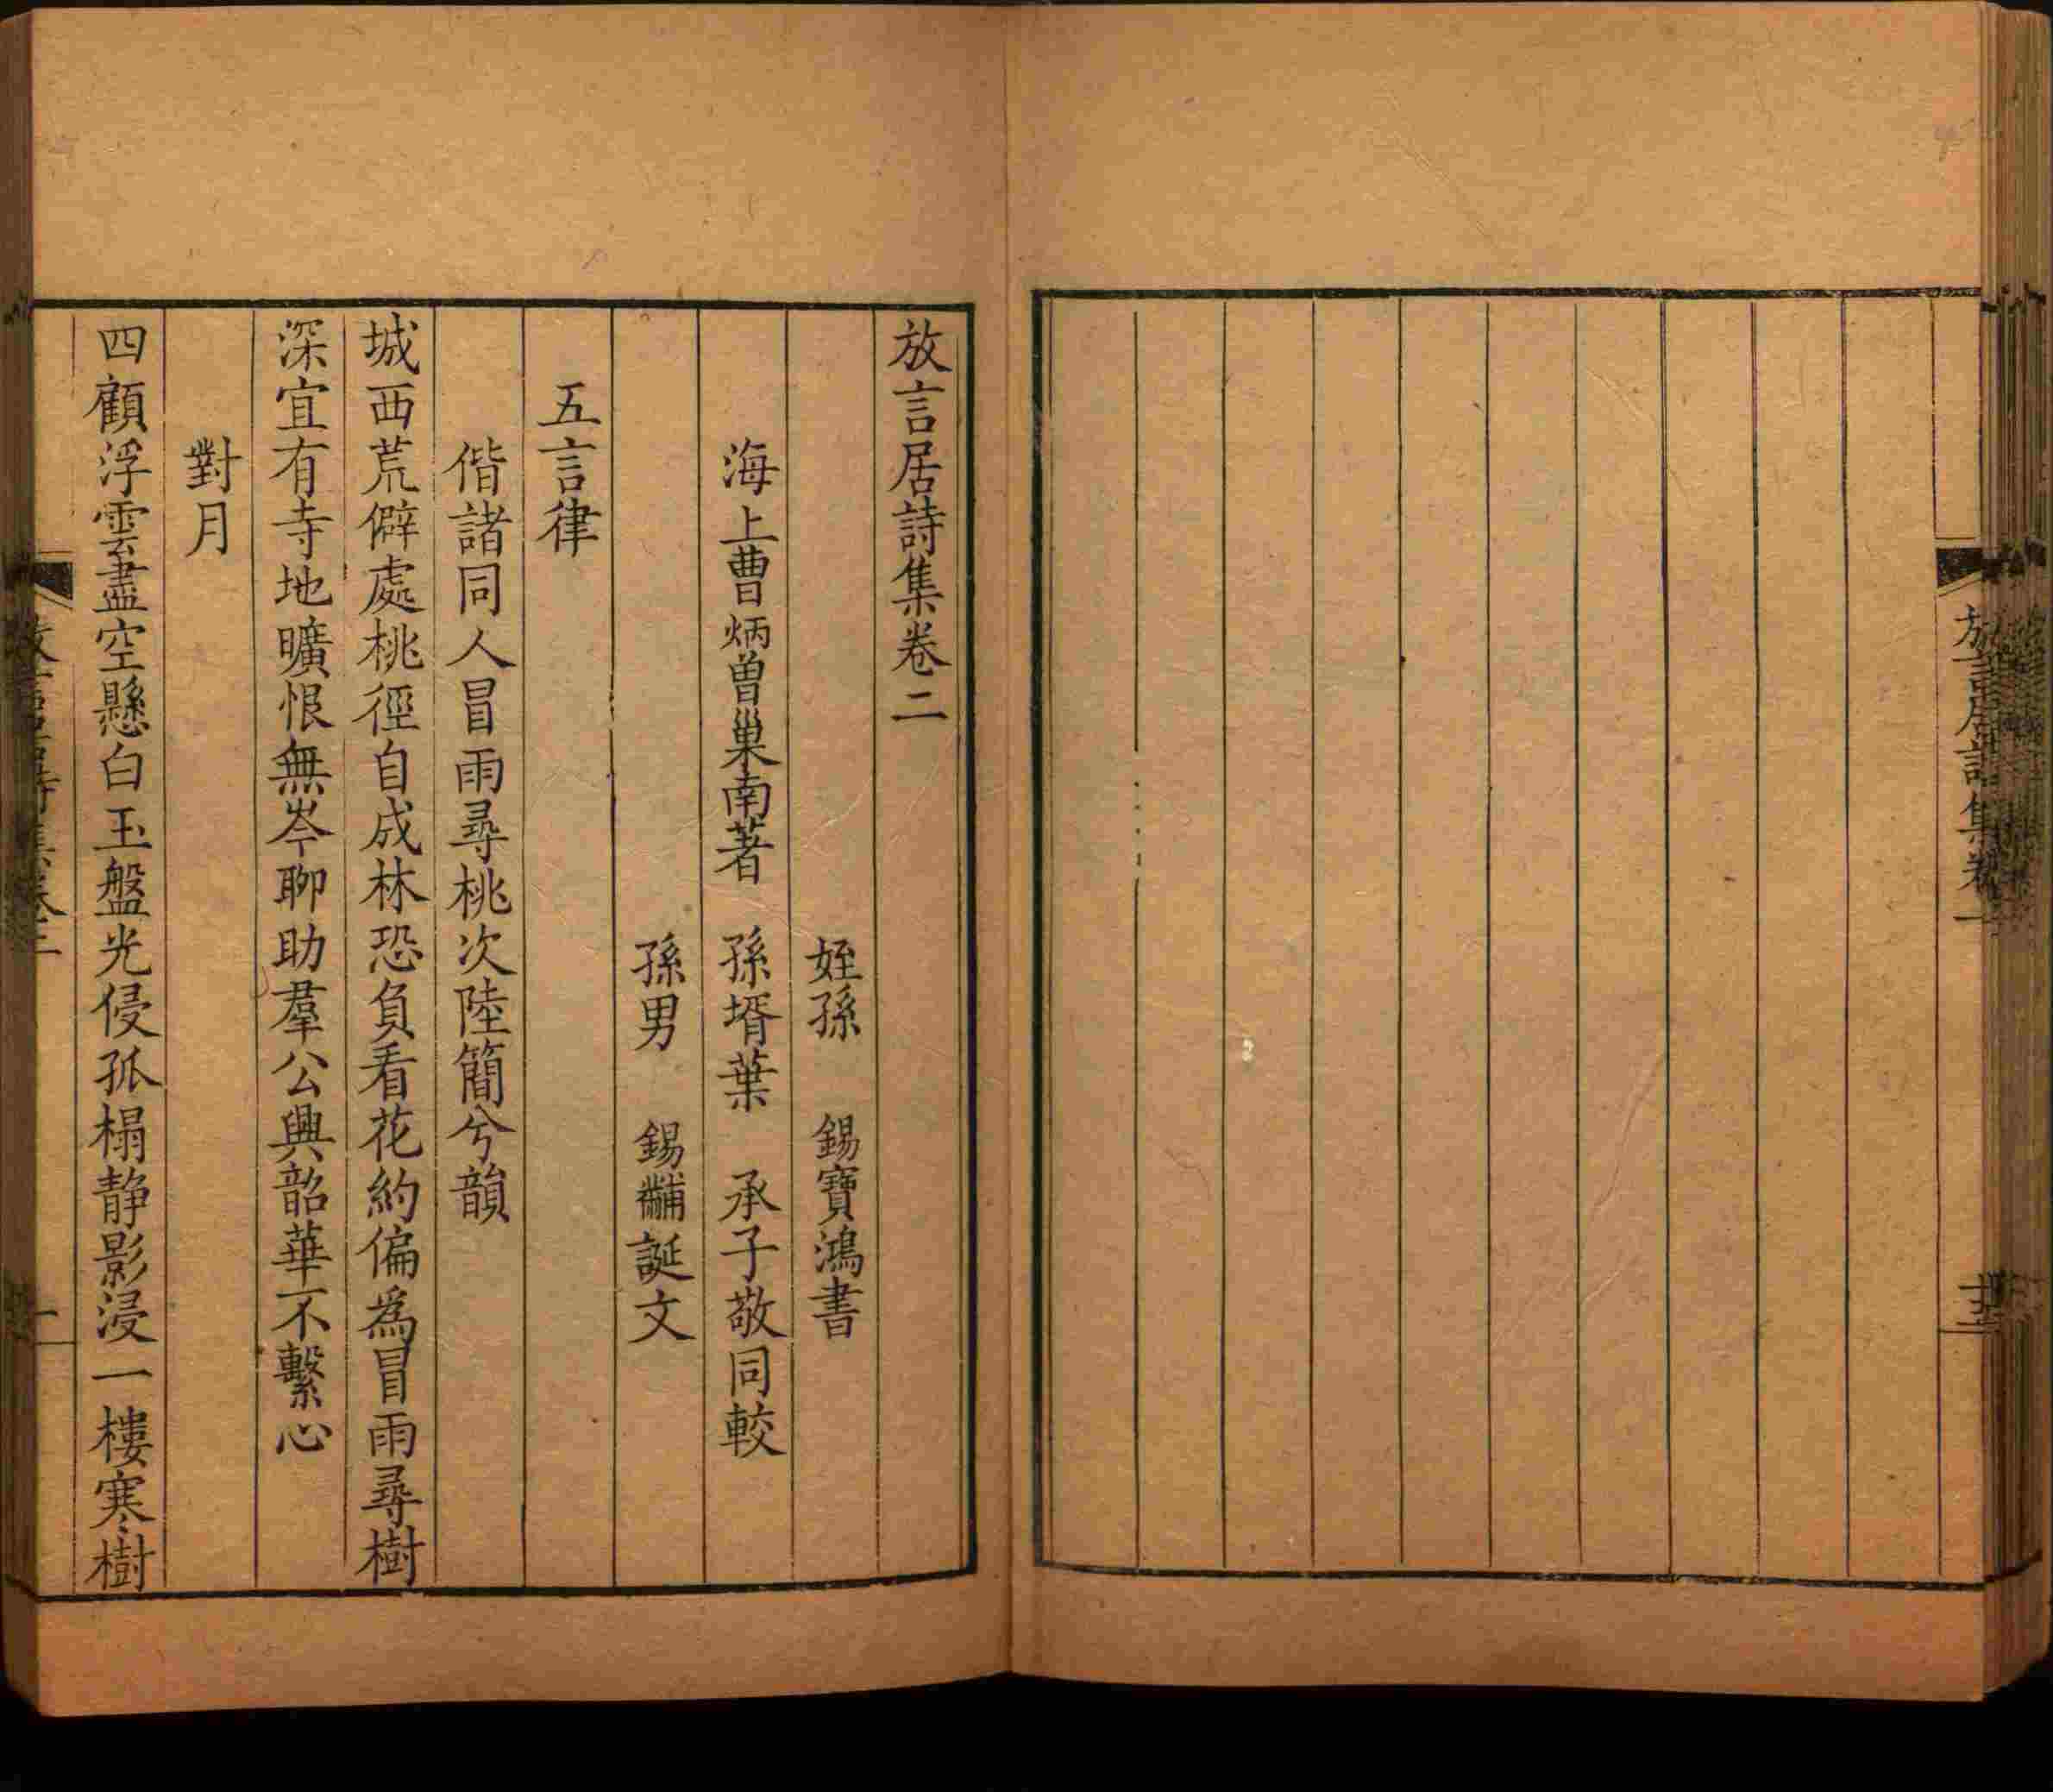 放言居詩集卷一
十三
放言居詩集卷二
姪孫　錫寶鴻書
海上曹炳曾巢南著　孫壻葉　承子敬同較
孫男　錫黼誕文
五言律
偕諸同人冒雨尋桃次陸簡兮韻
城西荒僻處桃徑自成林恐負看花約偏爲冒雨尋樹
深宜有寺地曠恨無岑聊助羣公興韶華不繫心
對月
四顧浮雲盡空懸白玉盤光侵孤榻静影浸一樓寒樹
放言居詩集卷二
一